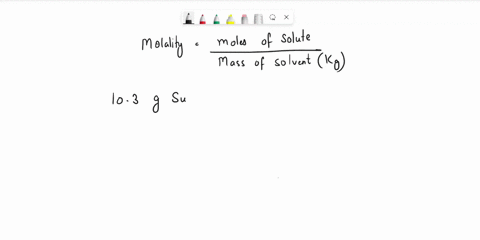 Molality = moles of solute / Mass of solvent (Kg)
10.3 g Su